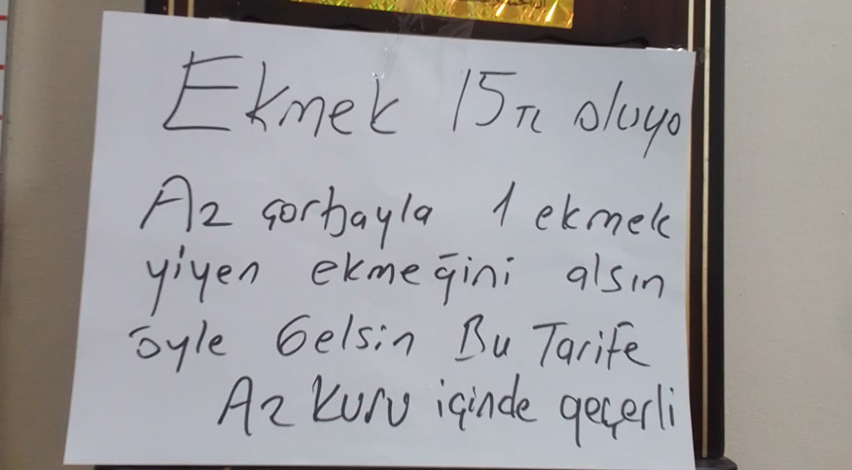 Ekmek 15 TL oluyo
Az çorbayla 1 ekmek
yiyen ekmeğini alsın
öyle Gelsin Bu Tarife
Az kuru içinde geçerli